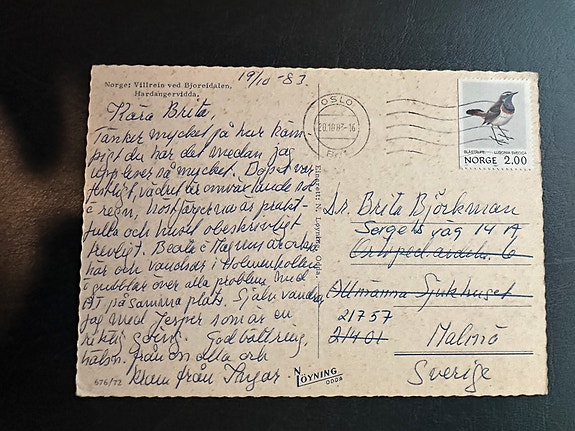 19/10 -83.
Norge: Villrein ved Bjoreidalen,
Hardangervidda.
Kära Brita,
Tänker mycket på hur käm-
pigt du har det medan jag
upplever så mycket. Dopet var
festligt, vädret omväxlande sol
o regn, höstfärgerna prakt-
fulla och huset obeskrivligt
trevligt. Beate o Rasmus
har och vandrar i Holmenkollen
o grubblar över alla problem med
på samma plats. Själv vandrar
jag med Jesper som är en
riktig going. God bättring,
hälsn. från oss alla och
kram från Ingar.
676/72
Enerett: N. Løyning, Odda.
LØYNING
ODDA
OSLO
20.10.83-16
BLÅSTRUPE LUSCINIA SVECICA
NORGE 2.00
Dr. Brita Björkman
Sergels väg 14 A
Ortoped. avdeln. 6
Allmänna Sjukhuset
21757
21401 Malmö
Sverige